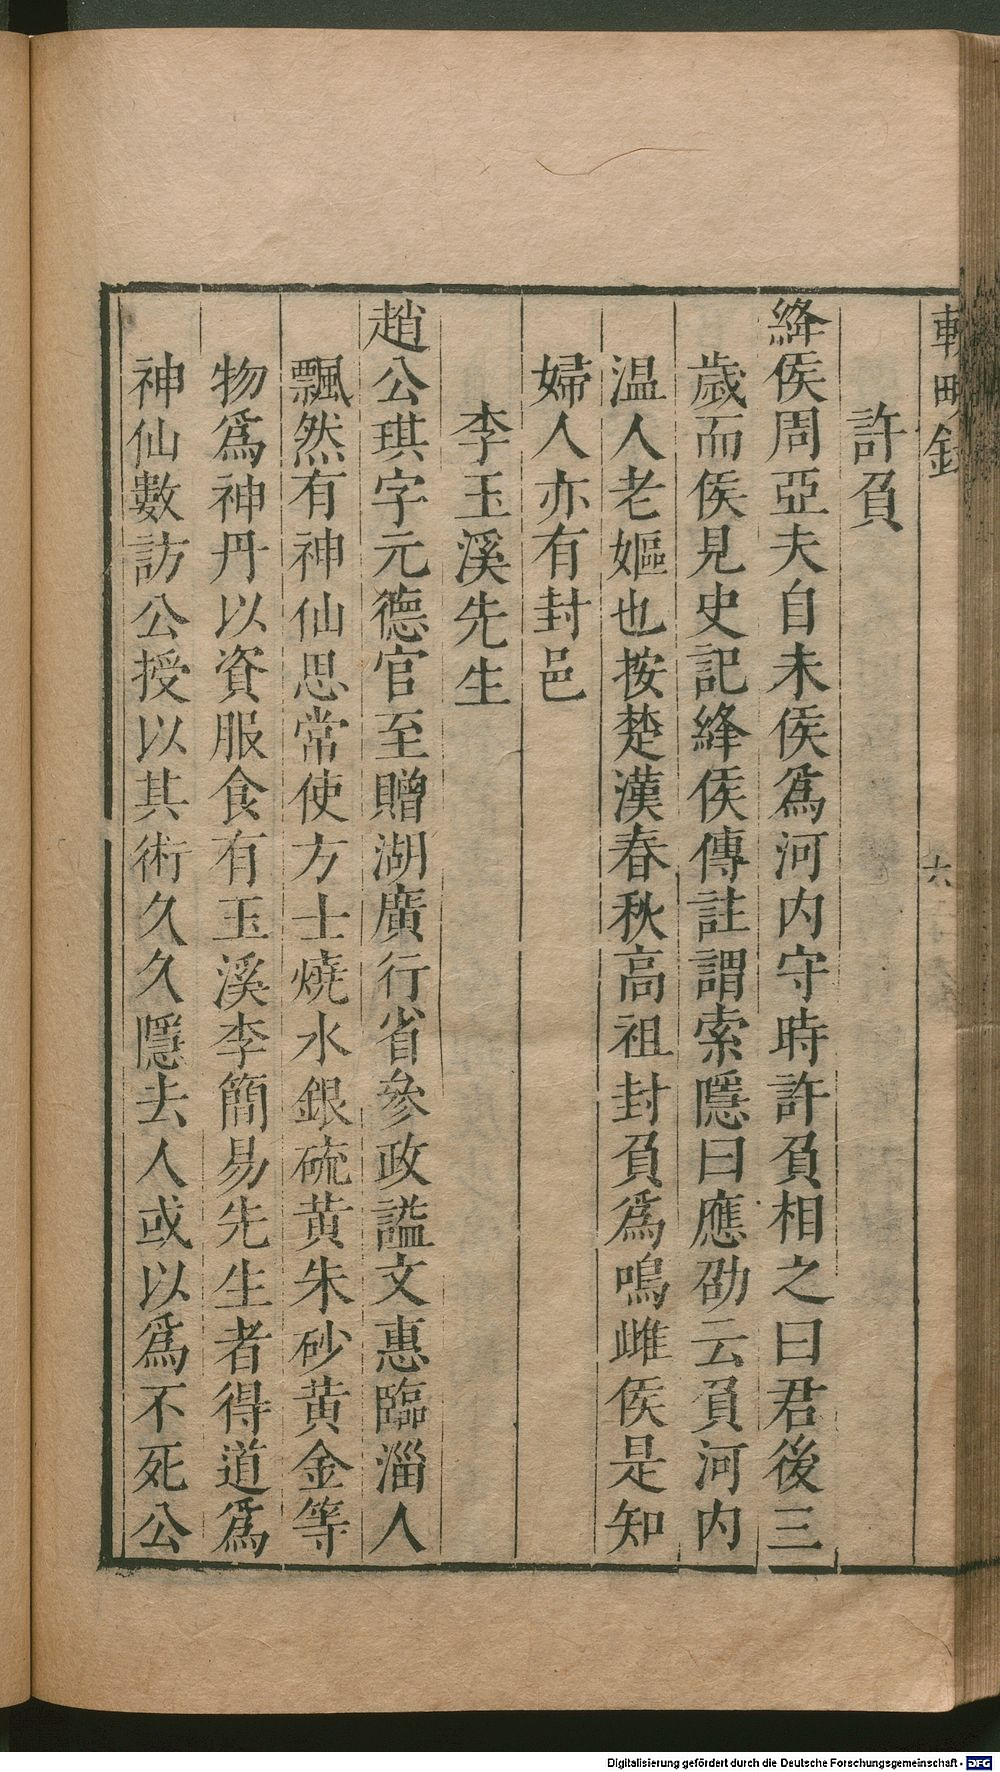 輟畊錄
六
許負
絳侯周亞夫自未侯爲河内守時許負相之曰君後三
歲而侯見史記絳侯傳註謂索隱曰應劭云負河内
温人老嫗也按楚漢春秋高祖封負爲鳴雌侯是知
婦人亦有封邑
李玉溪先生
趙公琪字元德官至贈湖廣行省參政謚文惠臨淄人
飄然有神仙思常使方士燒水銀硫黄朱砂黄金等
物爲神丹以資服食有玉溪李簡易先生者得道爲
神仙數訪公授以其術久久隱去人或以爲不死公
Digitalisierung gefördert durch die Deutsche Forschungsgemeinschaft - DFG